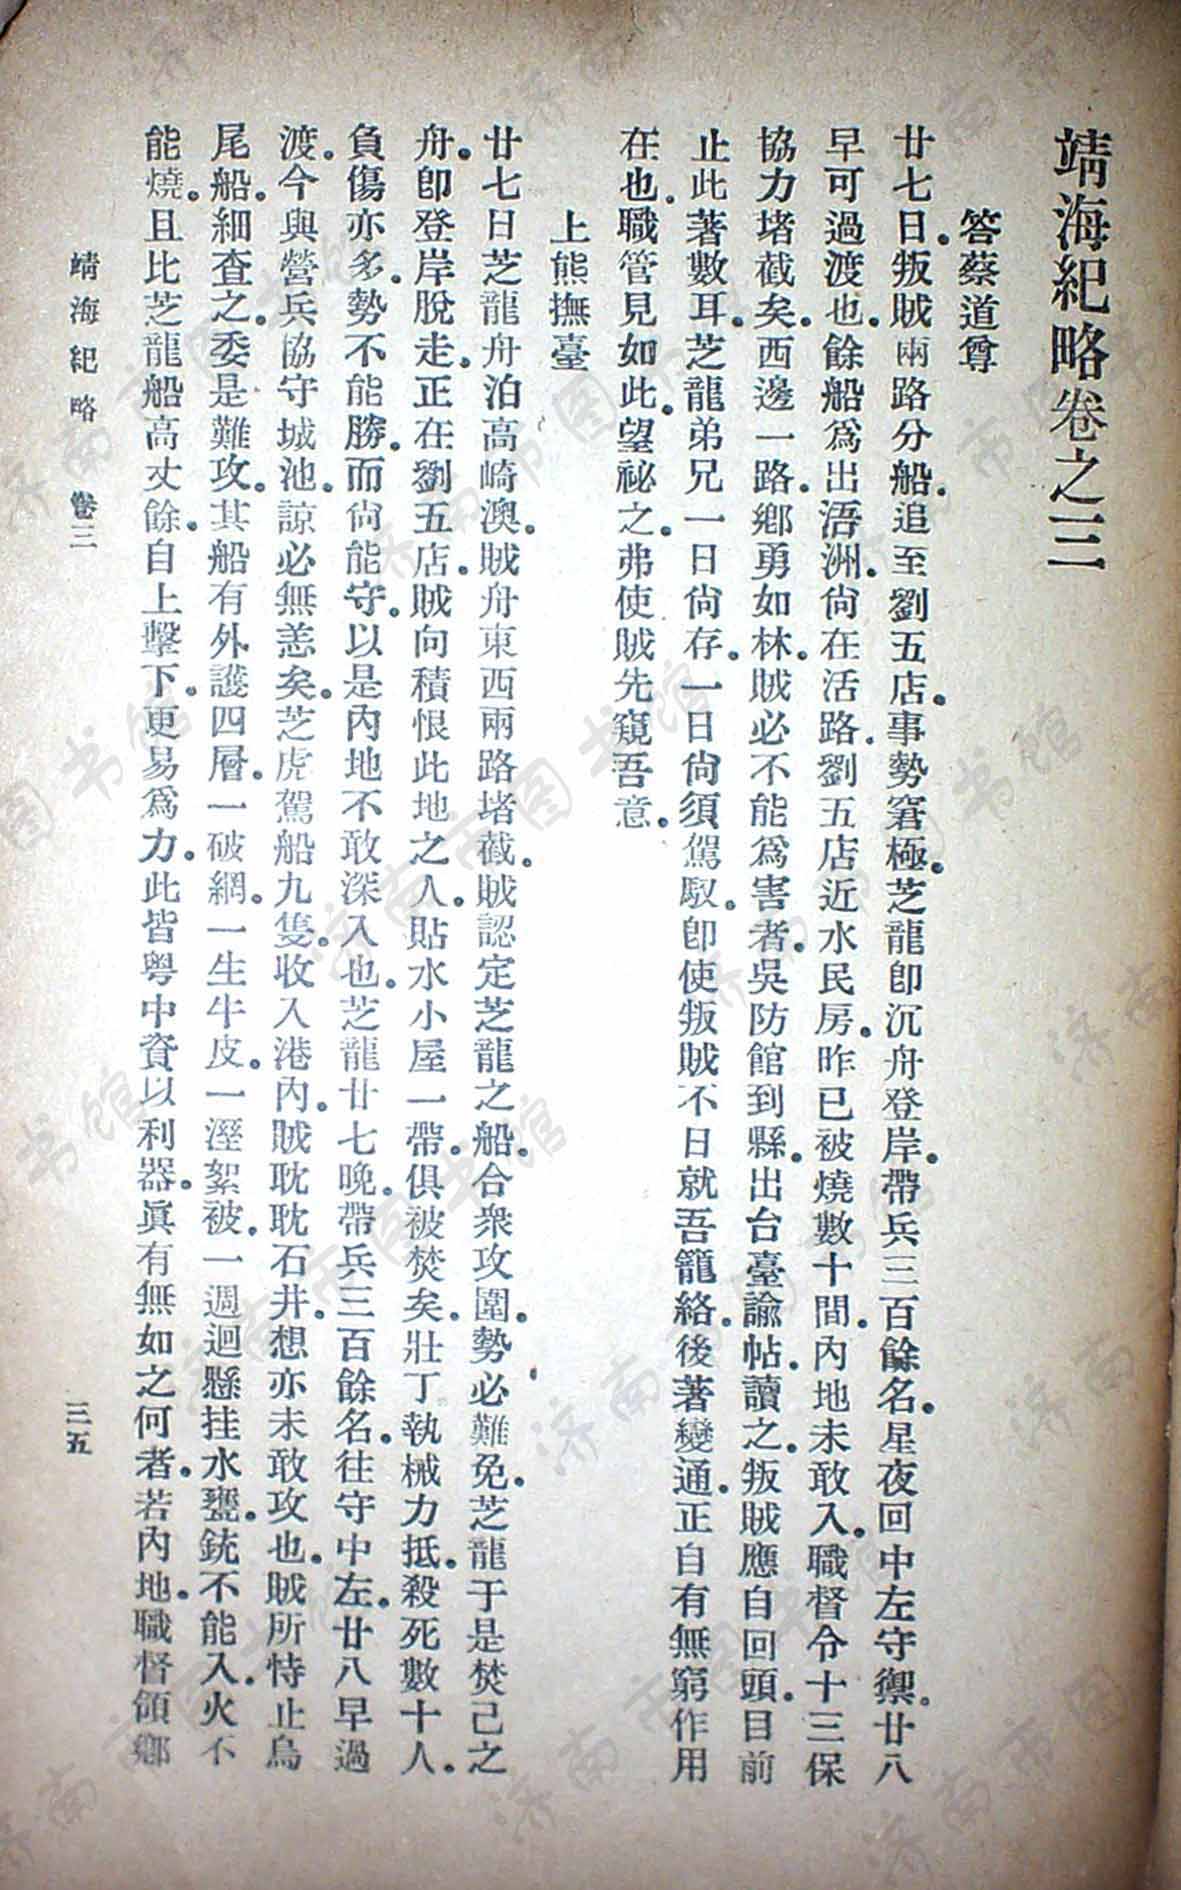 靖海紀略卷之三
答蔡道尊
廿七日。叛賊兩路分船。追至劉五店。事勢窘極。芝龍卽沉舟登岸。帶兵三百餘名。星夜回中左守禦。廿八
早可過渡也。餘船爲出浯洲。尙在活路。劉五店近水民房。昨已被燒數十間。內地未敢入。職督令十三保
協力堵截矣。西邊一路。鄉勇如林。賊必不能爲害者。吳防館到縣。出台臺諭帖。讀之。叛賊應自回頭。目前
止此著數耳。芝龍弟兄一日尙存。一日尙須駕馭。卽使叛賊不日就吾籠絡。後著變通。正自有無窮作用
在也。職管見如此。望祕之。弗使賊先窺吾意。
上熊撫臺
廿七日芝龍舟泊高崎澳。賊舟東西兩路堵截。賊認定芝龍之船。合衆攻圍。勢必難免。芝龍于是焚己之
舟。卽登岸脫走。正在劉五店。賊向積恨此地之人。貼水小屋一帶。俱被焚矣。壯丁執械力抵。殺死數十人。
負傷亦多。勢不能勝。而尙能守。以是內地不敢深入也。芝龍廿七晚。帶兵三百餘名。往守中左。廿八早過
渡。今與營兵協守城池。諒必無恙矣。芝虎駕船九隻。收入港內。賊耽耽石井。想亦未敢攻也。賊所恃止鳥
尾船。細查之。委是難攻。其船有外護四層。一破網。一生牛皮。一溼絮被。一週迴懸挂水甕。銃不能入。火不
能燒。且比芝龍船高丈餘。自上擊下。更易爲力。此皆粵中資以利器。眞有無如之何者。若內地。職督領鄉
靖海紀略 卷三
三五
济南市图书馆